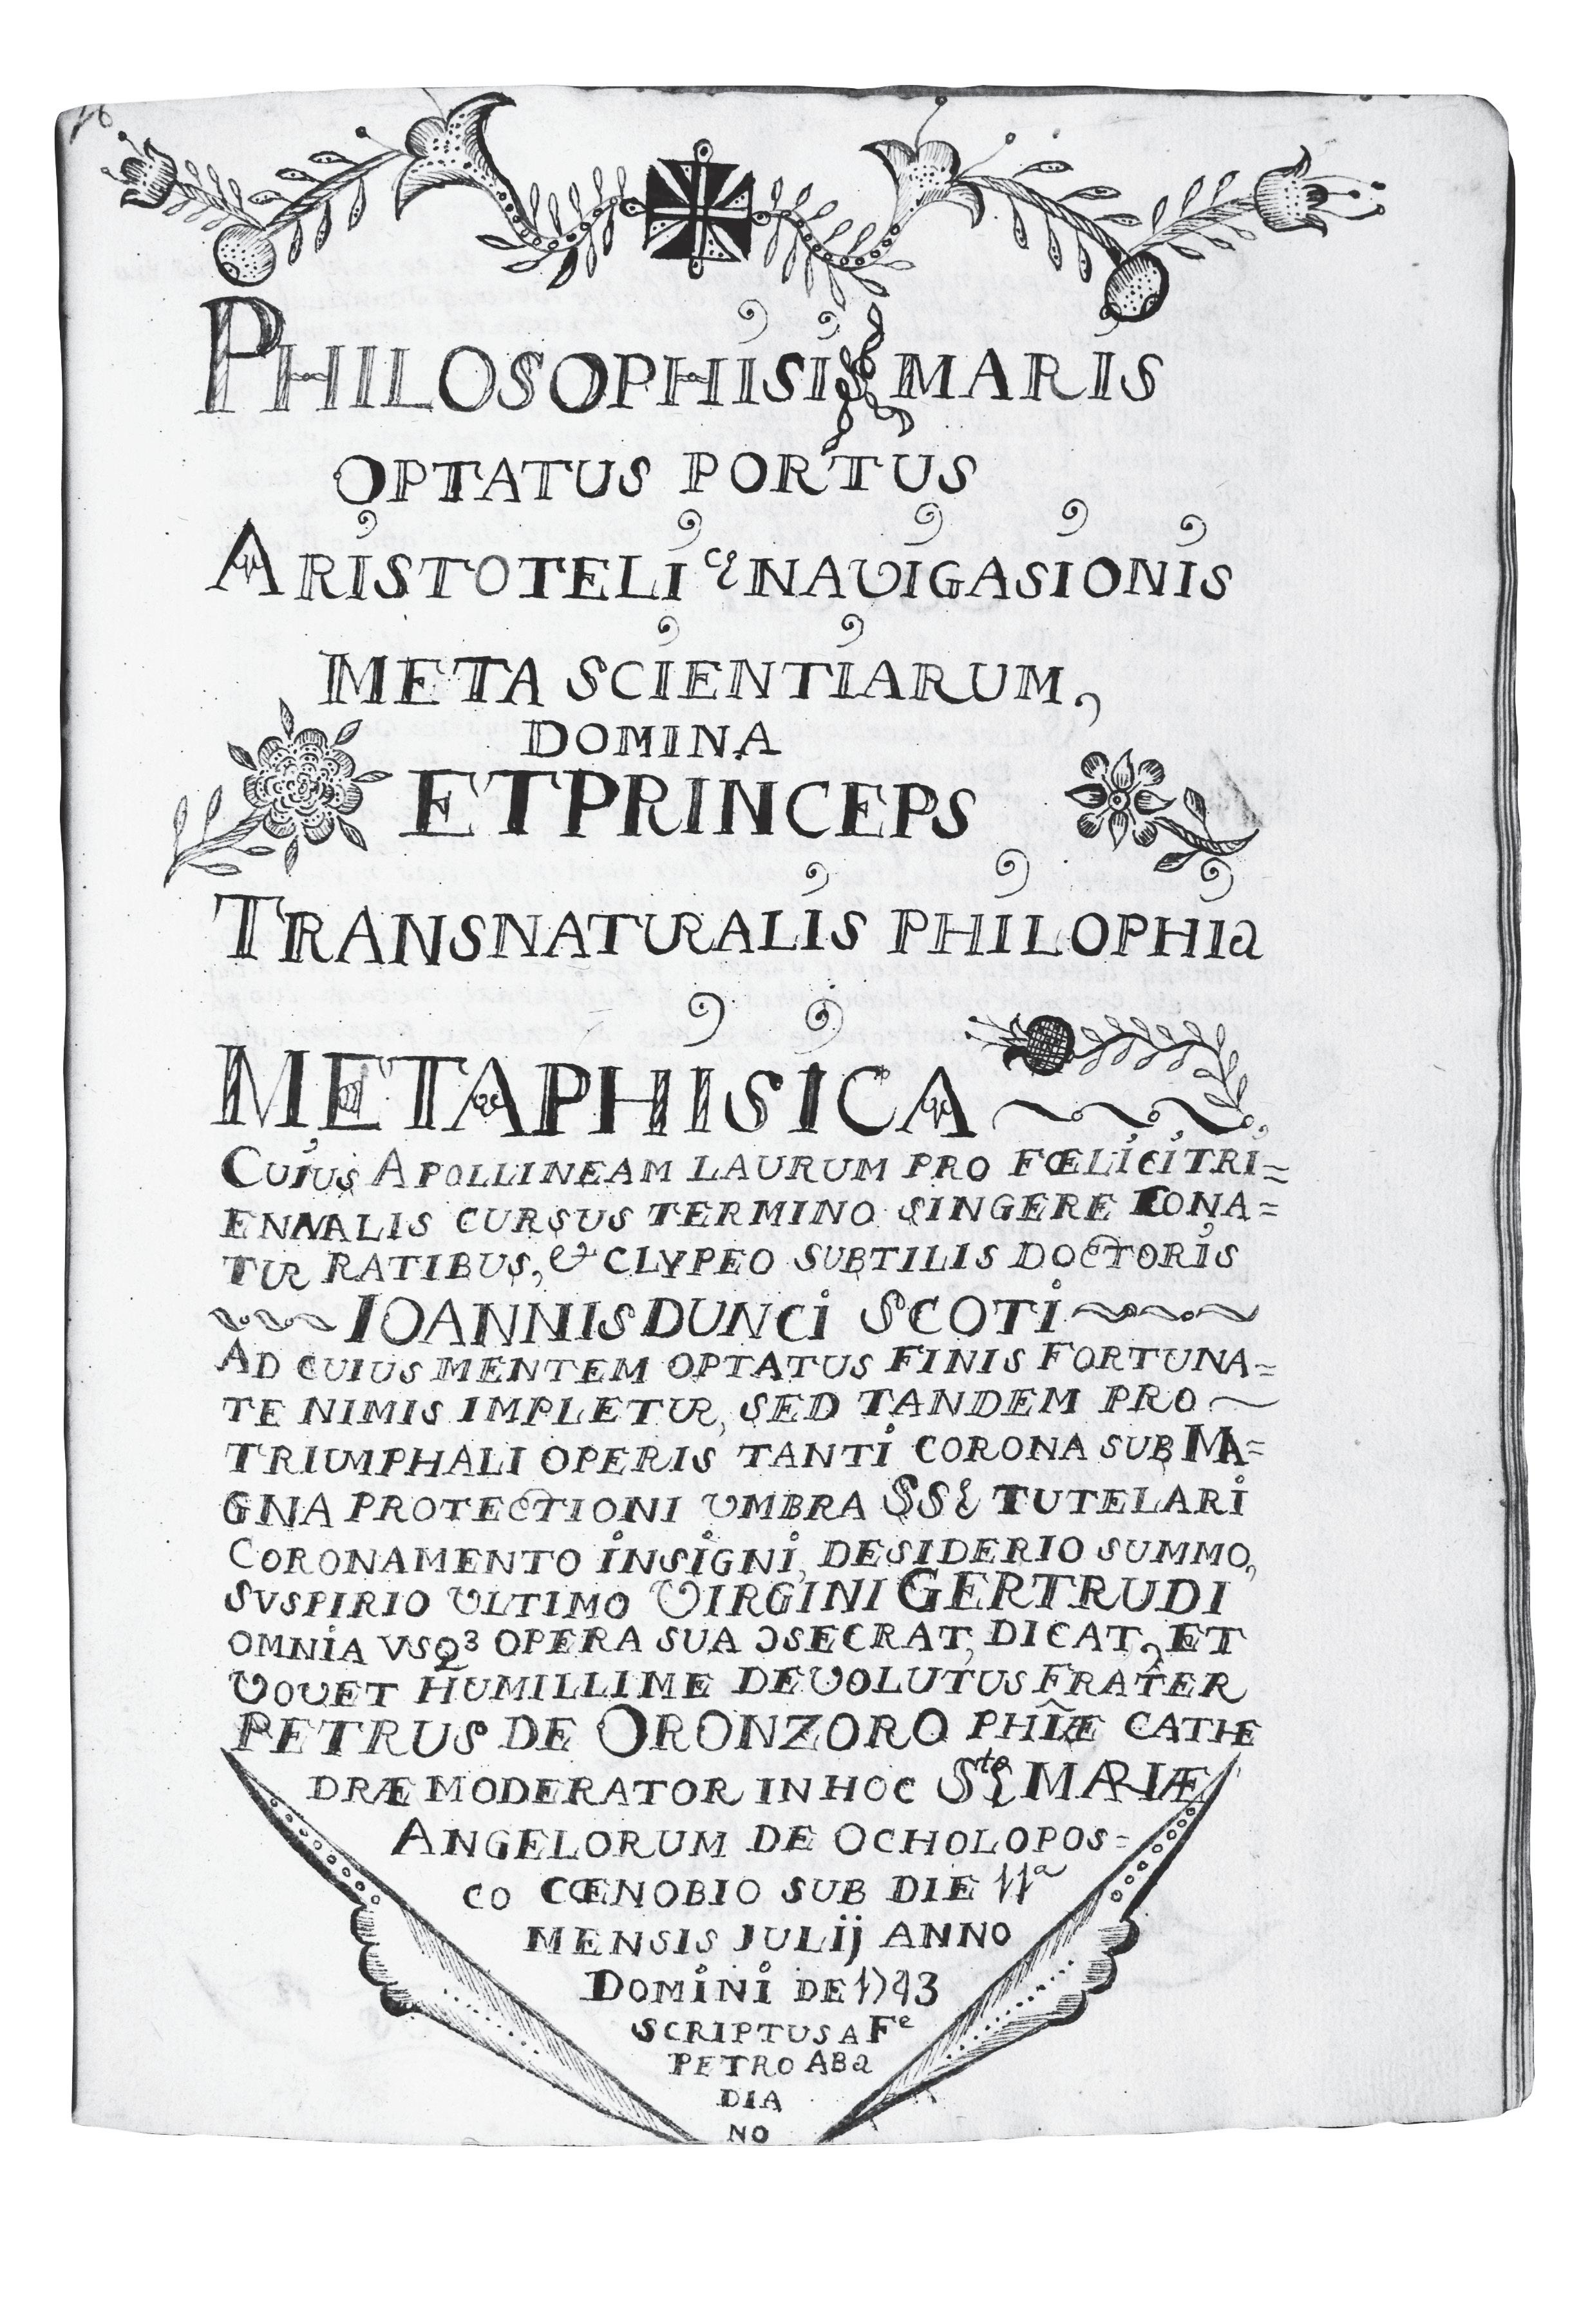 PHILOSOPHISIS MARIS
OPTATUS PORTUS
ARISTOTELICĘ NAVIGASIONIS
META SCIENTIARUM,
DOMINA
ET PRINCEPS
TRANSNATURALIS PHILOPHIa
METAPHISICA
CUIUS APOLLINEAM LAURUM PRO FŒLICI TRI=
ENNALIS CURSUS TERMINO SINGERE CONA=
TUR RATIBUS, & CLYPEO SUBTILIS DOCTORIS
IOANNIS DUNCI SCOTI
AD CUIUS MENTEM OPTATUS FINIS FORTUNA=
TE NIMIS IMPLETUR, SED TANDEM PRO
TRIUMPHALI OPERIS TANTI CORONA SUB MA=
GNA PROTECTIONI VMBRA SSĘ TUTELARI
CORONAMENTO INSIGNI, DESIDERIO SUMMO,
SVSPIRIO VLTIMO VIRGINI GERTRUDI
OMNIA VSQ3 OPERA SUA ƆSECRAT, DICAT, ET
VOVET HUMILLIME DEVOLUTUS FRATER
PETRUS DE ORONZORO PHIÆ CATHE
DRÆ MODERATOR IN HOC Stę MARIÆ
ANGELORUM DE OCHOLOPOS=
CO CŒNOBIO SUB DIE 11a
MENSIS JULij ANNO
DOMINI DE 1743
SCRIPTUS A Fe
PETRO ABa
DIA
NO